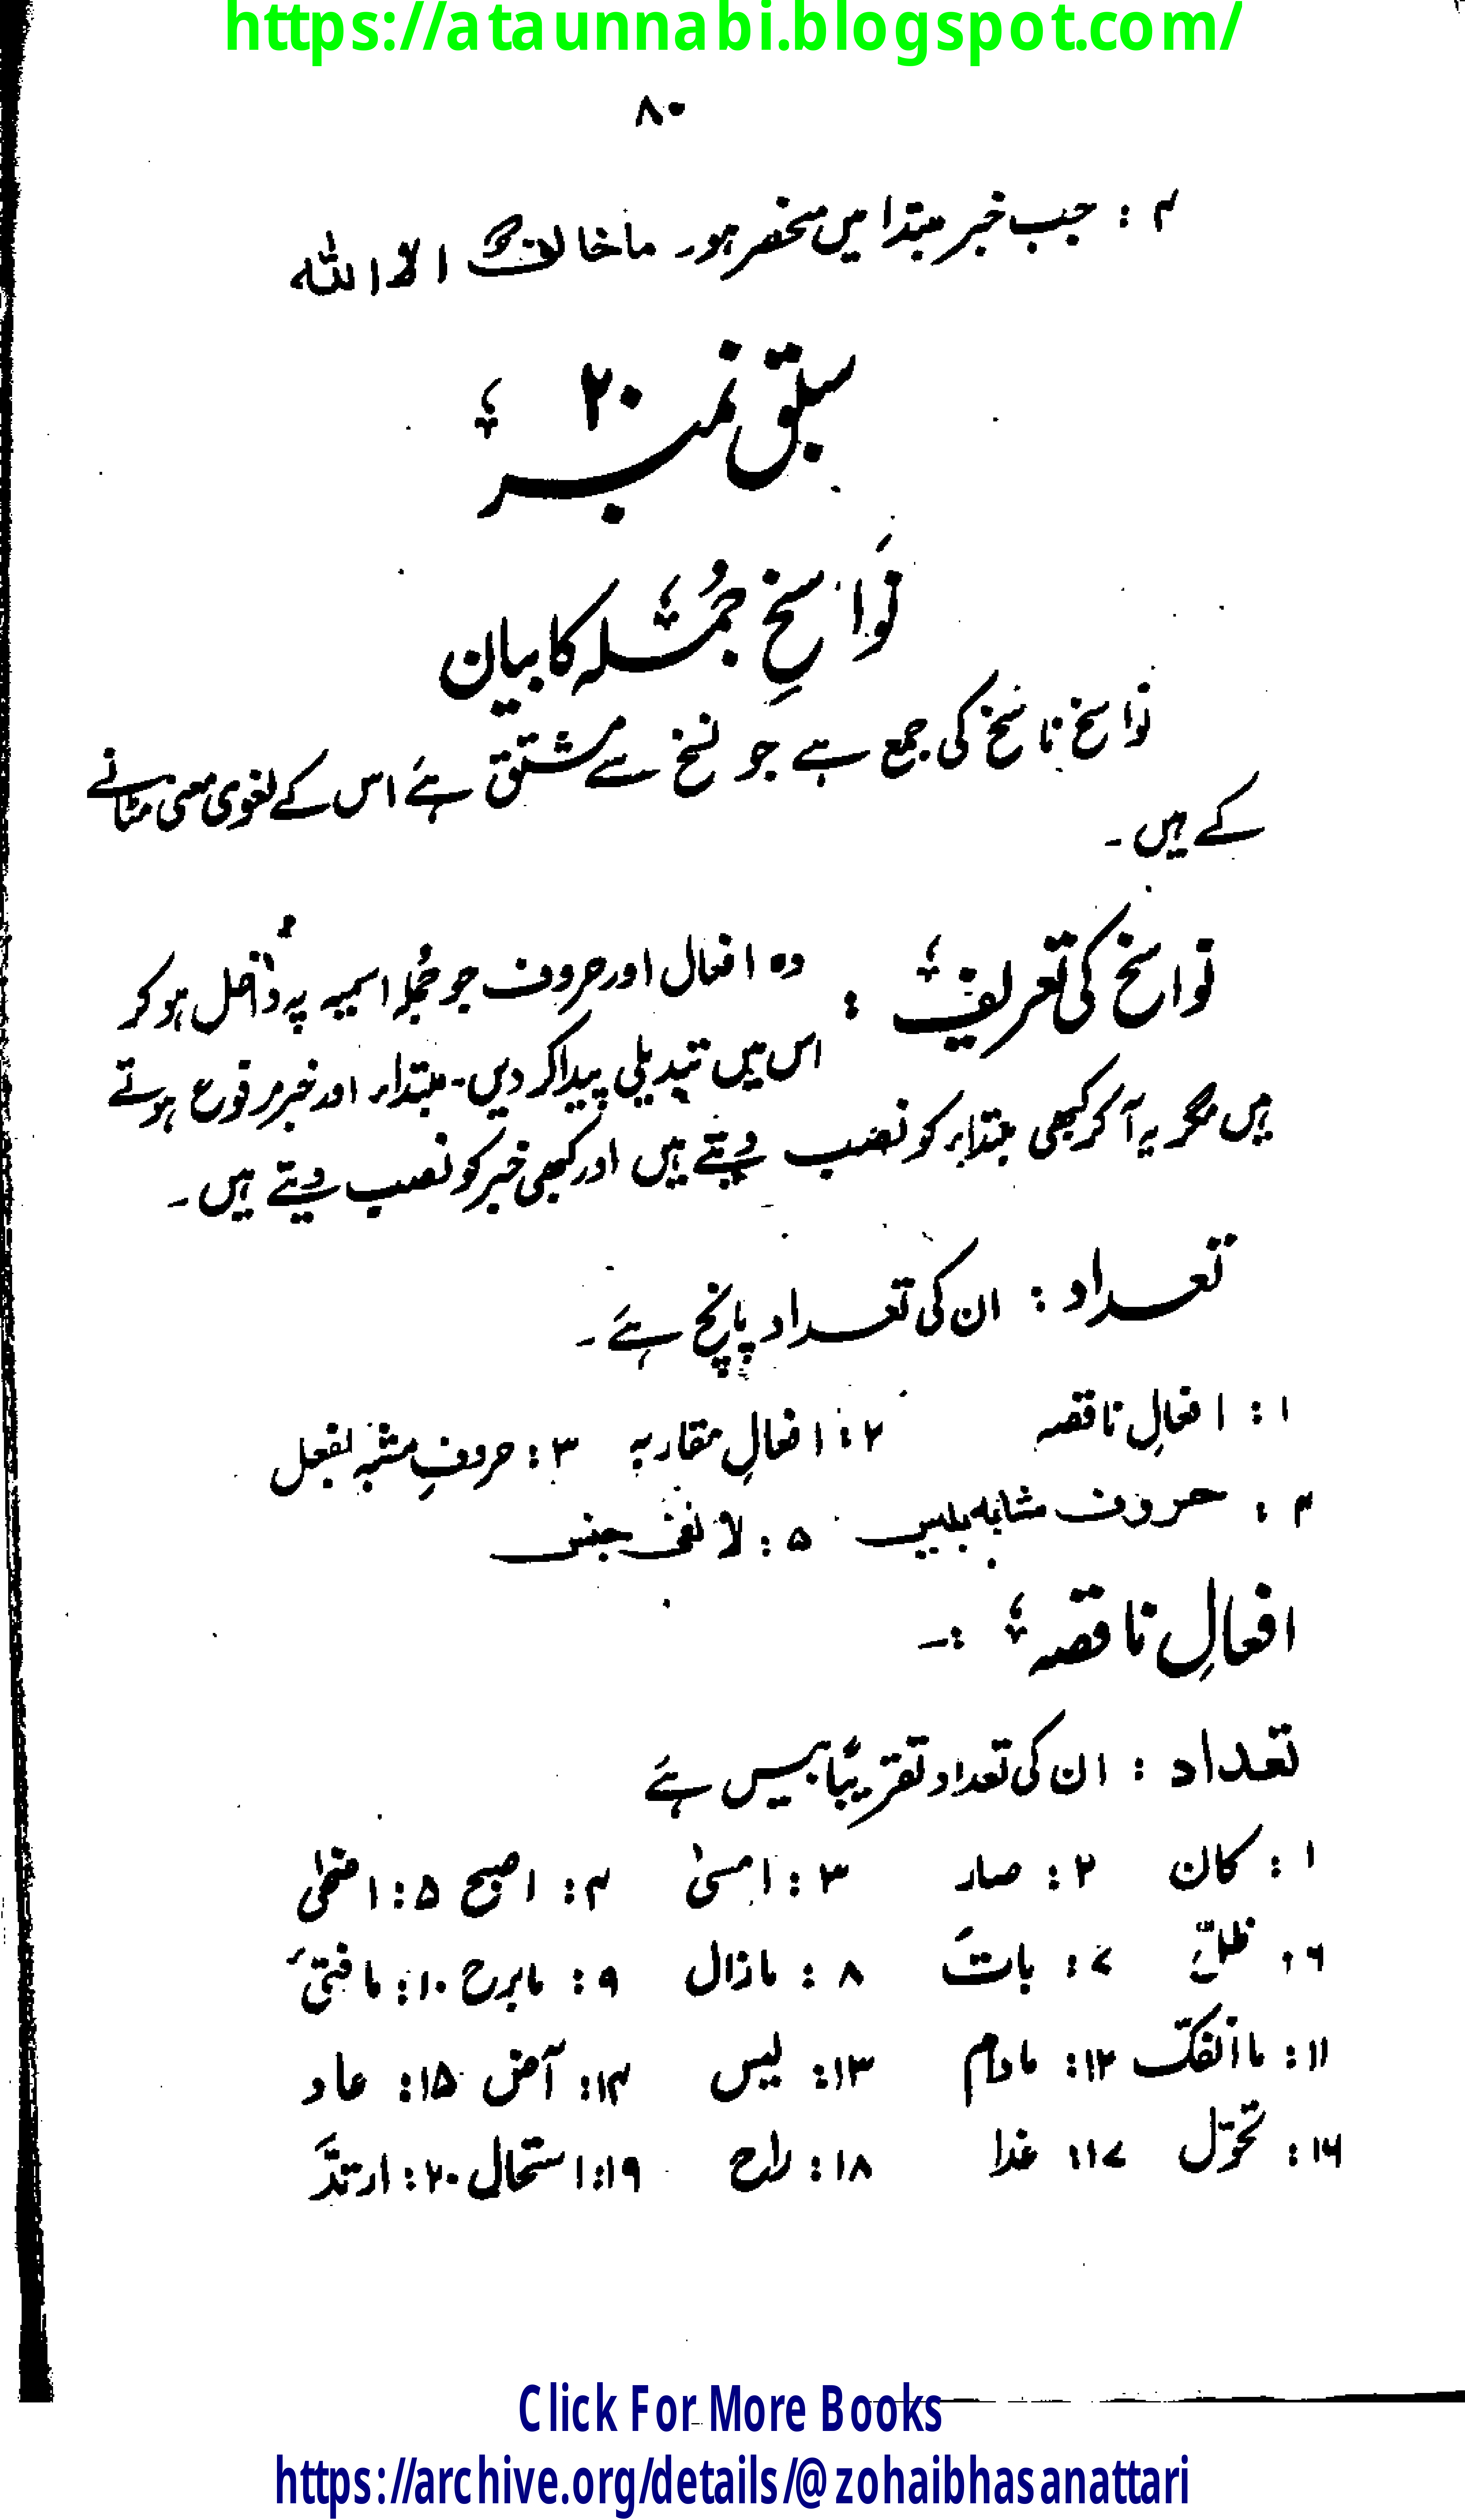 https://ataunnabi.blogspot.com/
۸۰
۴ : جب خبر مبتدا میں منحصر ہو۔ ما خالق الا اللہ
سبق نمبر ۲۰
نَواسخِ جُملہ کا بیان
نواسخ ناسخ کی جمع ہے جو نسخ سے مشتق ہے اس کے لغوی معنی مٹانے
کے ہیں۔
نواسخ کی تعریف : وہ افعال اور حروف جو جملہ اسمیہ پہ داخل ہو کر
اس میں تبدیلی پیدا کر دیں۔ مبتداء اور خبر مرفوع ہوتے
ہیں مگر یہ آ کر کبھی مبتداء کو نصب دیتے ہیں اور کبھی خبر کو نصب دیتے ہیں۔
تعداد : ان کی تعداد پانچ ہے۔
۱ : افعالِ ناقصہ ۲ : افعالِ مقاربہ ۳ : حروفِ مشبہ بفعل
۴ : حروف مشابہ بلیس ۵ : لا نفی جنس
افعالِ ناقصہ :۔
تعداد : ان کی تعداد تقریبًا بیس ہے
۱ : کان ۲ : صار ۳ : امسیٰ ۴ : اصبح ۵ : اضحٰی
۶ : ظلّ ۷ : باتَ ۸ : مازال ۹ : مابرح ۱۰ : مافتیَٔ
۱۱ : ماانفکّ ۱۲ : مادام ۱۳ : لیس ۱۴ : آض ۱۵ : عاد
۱۶ : تحوّل ۱۷ : غدا ۱۸ : راح ۱۹ : استحال ۲۰ : ارتدَّ
Click For More Books
https://archive.org/details/@zohaibhasanattari